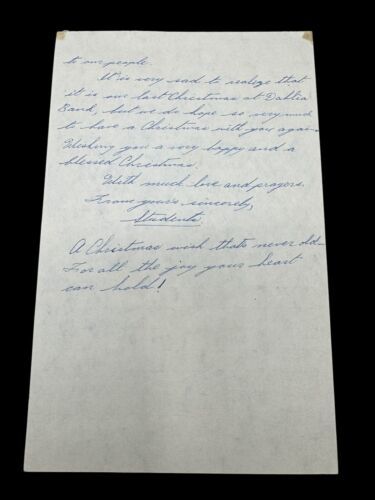 to our people.
It is very sad to realize that
it is our last Christmas at Dahlia
Bank, but we do hope so very much
to have a Christmas with you again
Wishing you a very happy and a
blessed Christmas.
With much love and prayers,
From yours sincerely,
Students
A Christmas wish thats never old
For all the joy your heart
can hold!